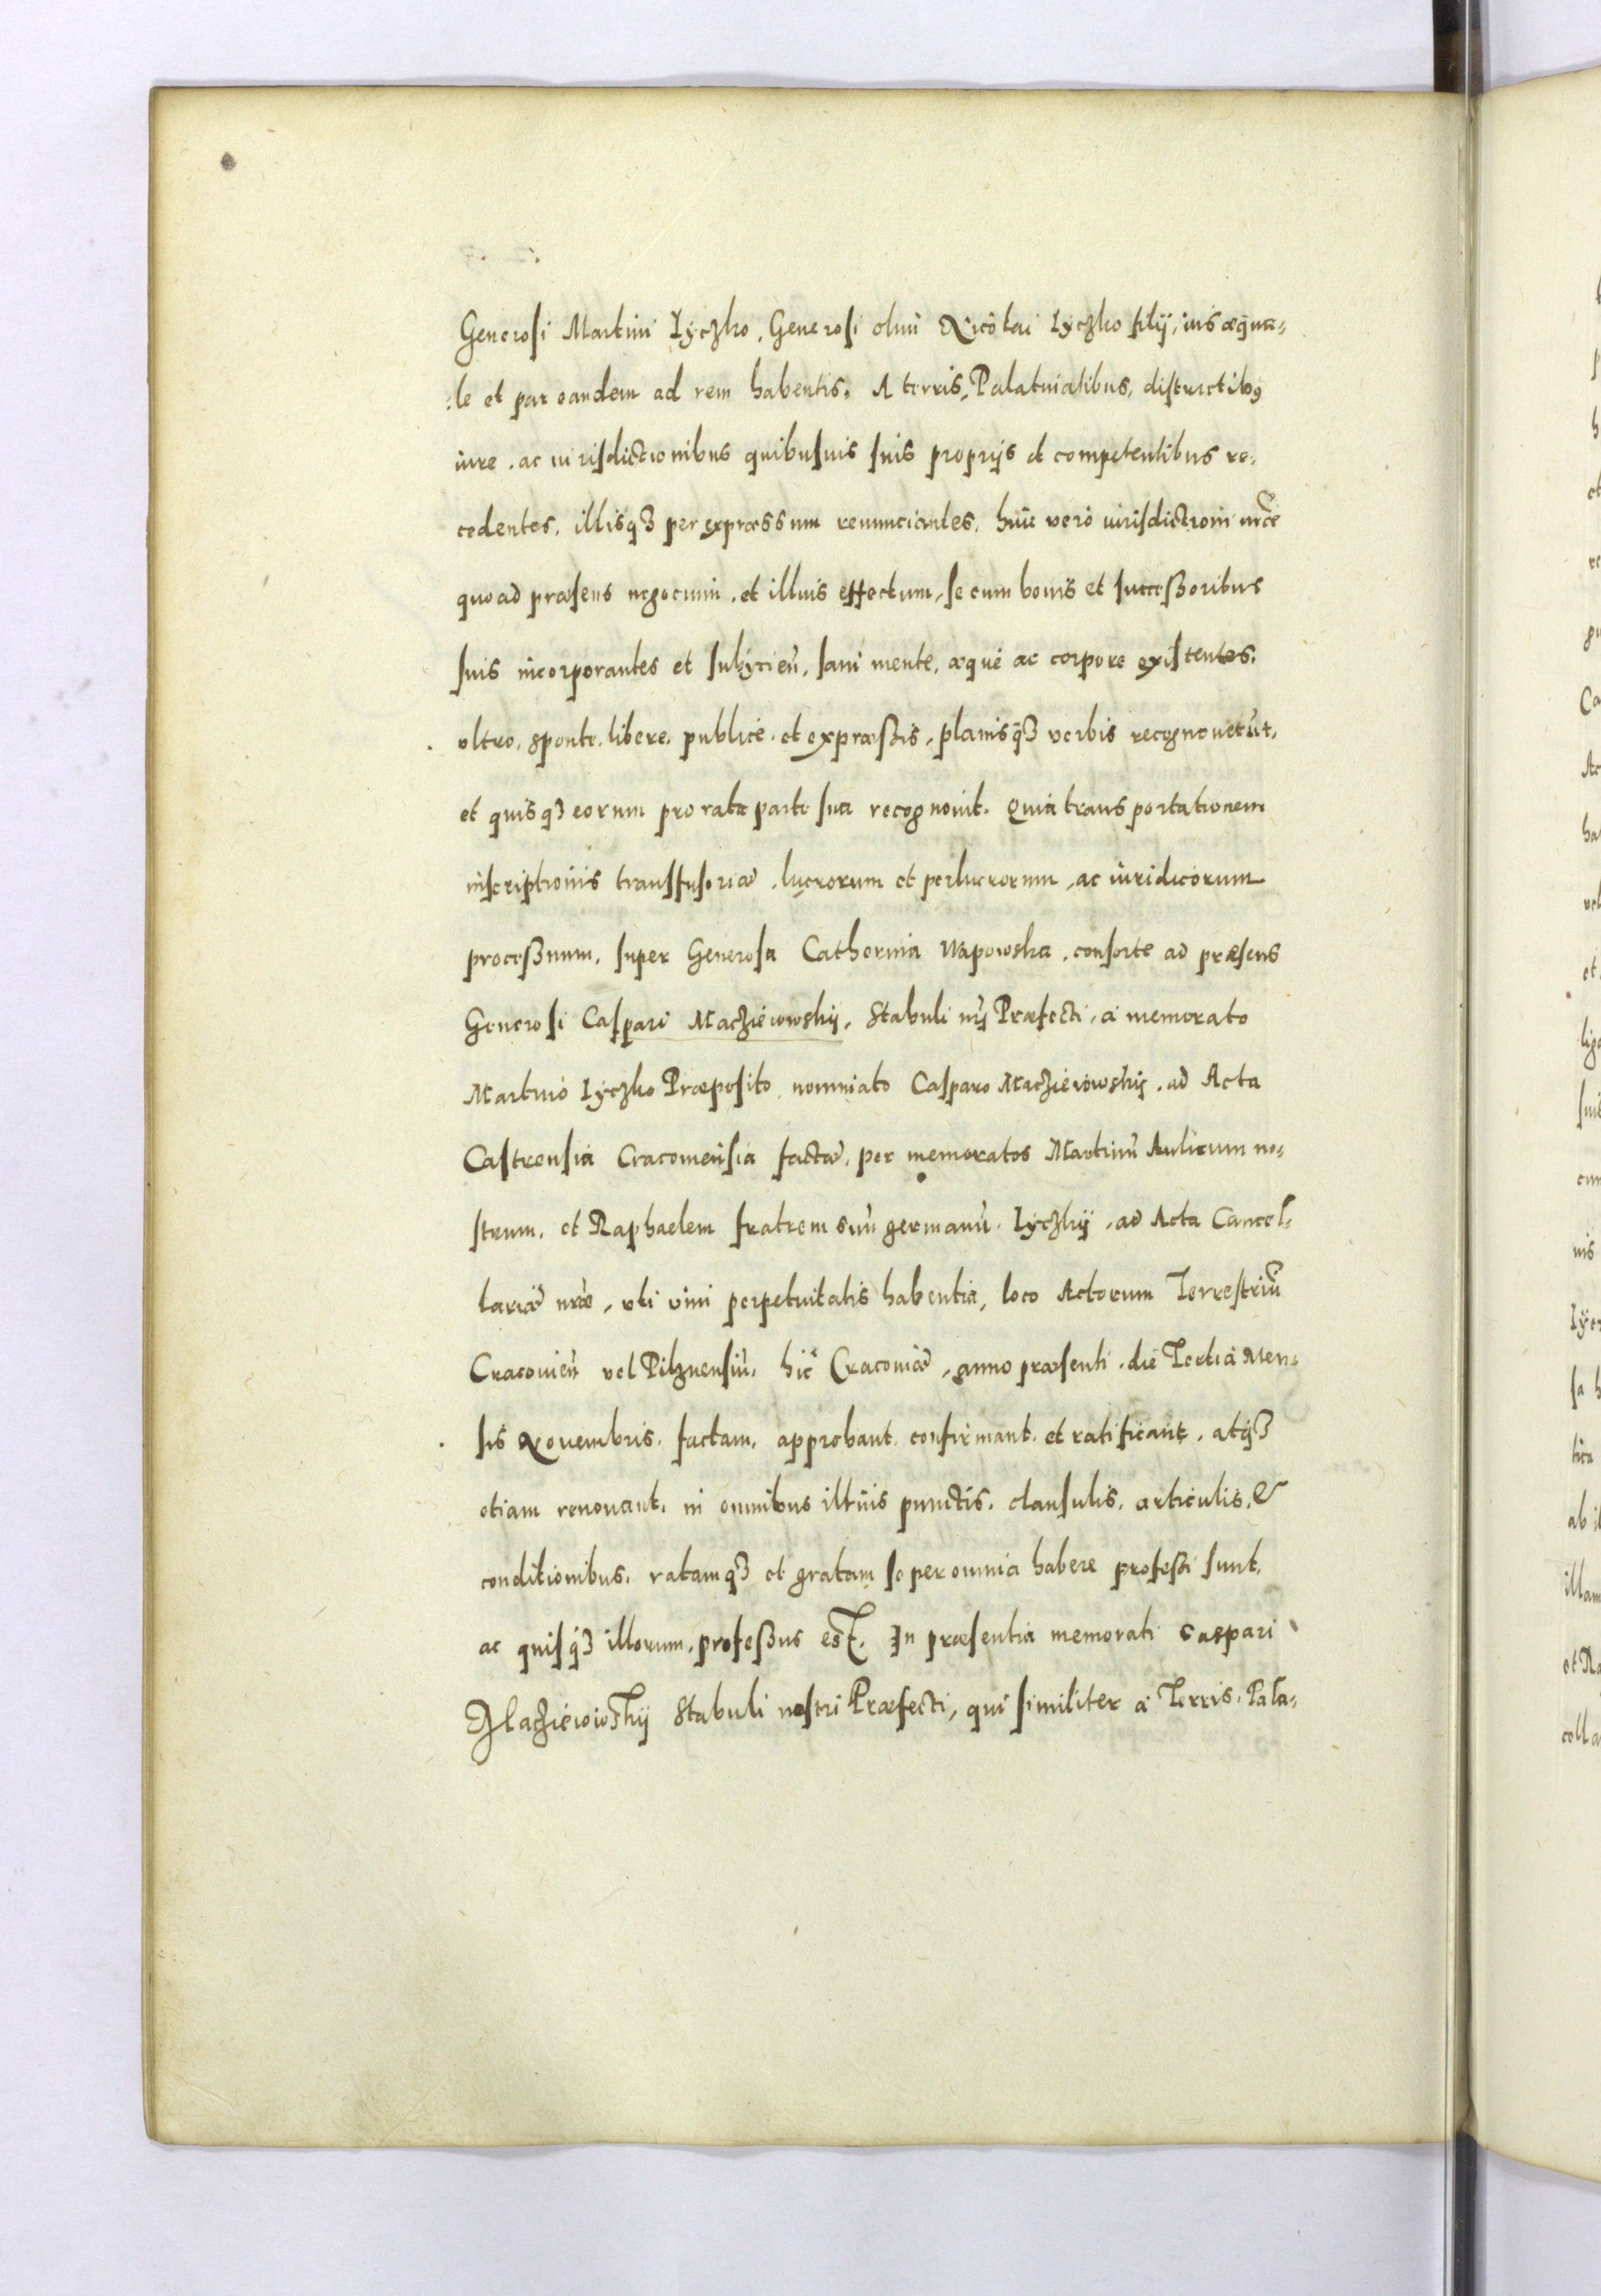 Generosi Martini Lyczko, Generosi olim Nicolai Lyczko filij, ius æqua-
le et par eandem ad rem habentis, A terris, Palatinatibus, districtibus
iure, ac iurisdictionibus quibusuis suis proprijs et competentibus re-
cedentes, illisqȝ per expressum renunciantes, huic vero iurisdictioni nrẽ
quoad præsens negocium, et illius effectum, se cum bonis et successoribus
suis incorporantes et subijcieñ, sani mente, æque ac corpore existentes,
vltro, sponte, libere, publice, et expressis, planisqȝ verbis recognouerũt,
et quisqȝ eorum pro rata parte sua recognouit. Quia transportationem
inscriptionis transfusoriæ, lucrorum et perlucrorum, ac iuridicorum
processuum, super Generosa Catherina Wapowska, consorte ad præsens
Generosi Caspari Macżieiowskij, Stabuli nri Præfecti, a memorato
Martino Lyczko Præposito, nominato Casparo Macżieiowskij, ad Acta
Castrensia Cracouiensia factæ, per memoratos Martinũ Aulicum no-
strum, et Raphaelem fratrem suũ germanũ Lyczkij, ad Acta Cancel-
lariæ nræ, vti vim perpetuitatis habentia, loco Actorum Terrestriũ
Cracouieñ vel Pilznensiũ, hic Cracouiæ, anno præsenti, die Tertia Men-
sis Nouembris, factam, approbant, confirmant, et ratificant, atqȝ
etiam renouant, in omnibus illius punctis, clausulis, articulis, &
conditionibus, ratamqȝ et gratam se per omnia habere professi sunt,
ac quisqȝ illorum, professus est. In præsentia memorati Caspari
Macżieiowskij Stabuli nostri Præfecti, qui similiter a Terris, Pala-